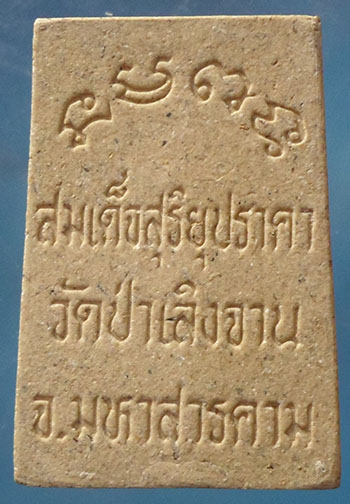 สมเด็จสุริยุปราคา
วัดป่าเลิงจาน
จ.มหาสารคาม